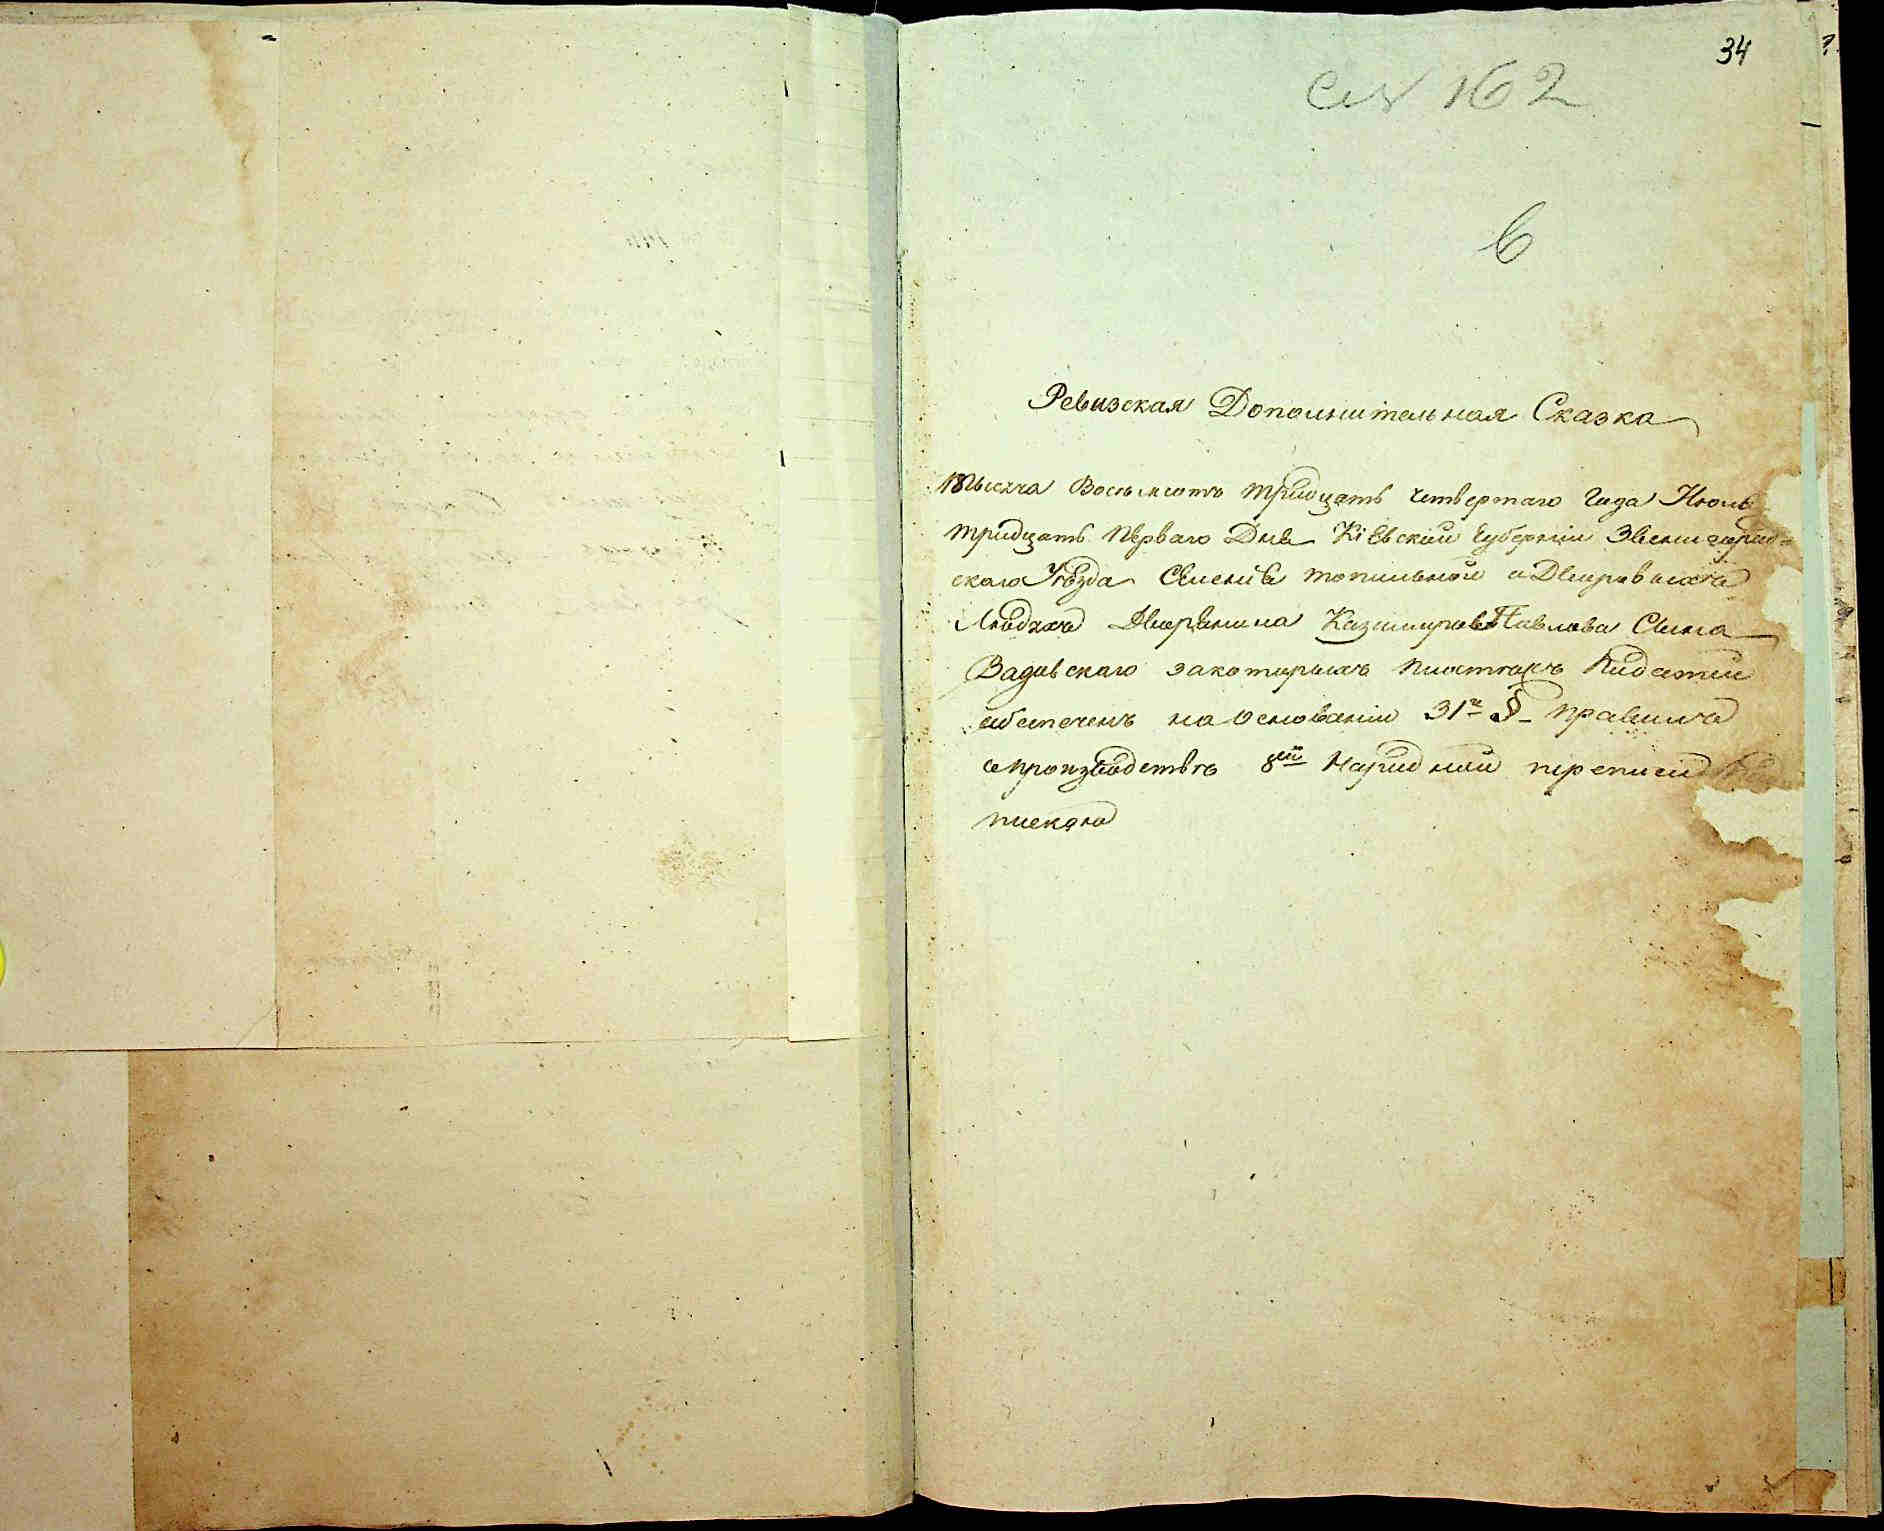 34
162
6
Ревизская Дополнительная Сказка
Тысяча Восемьсотъ тридцать четвертаго Года Июль
тридцать перваго Дня Кіевской Губерніи Звенигород=
скаго Уѣзда Селенія топильной о Дворовыхъ
Людяхъ Дворянина Казимира Павлова Сына
Вадовскаго за которыхъ Податей
обеспеченъ на Основаніи 31го § правилъ
о производствѣ 8ой Народной переписи
пискою